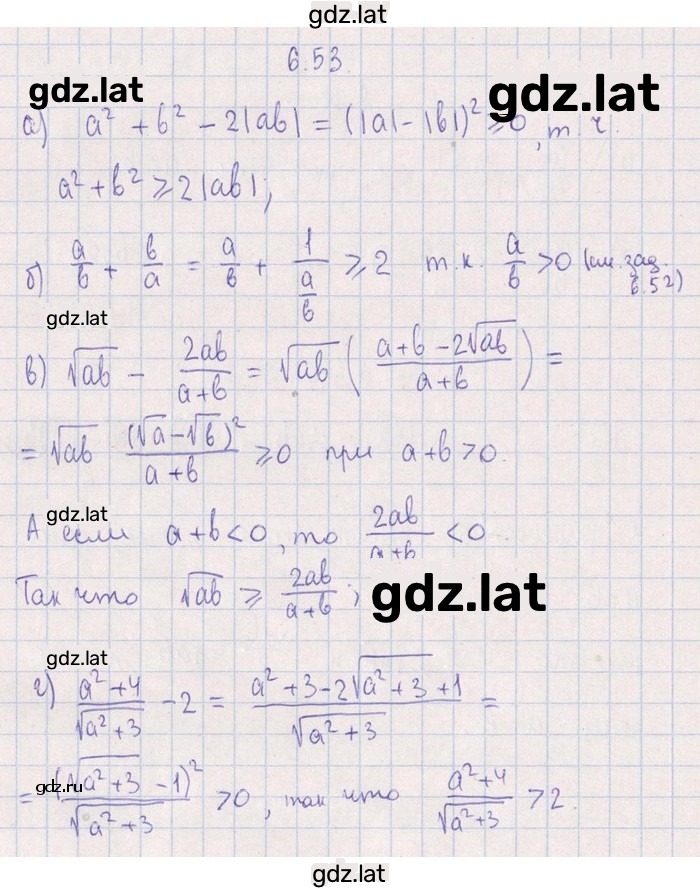 gdz.lat
6.53.
gdz.lat
gdz.lat
а) a² + b² - 2|ab| = (|a| - |b|)² ≥ 0, т. ч.
a² + b² ≥ 2|ab|;
б) a/b + b/a = a/b + 1/(a/b) ≥ 2 т.к. a/b > 0 (см. зад. 6.52)
gdz.lat
в) √ab - 2ab/(a+b) = √ab ((a+b-2√ab)/(a+b)) =
= √ab (√a-√b)²/(a+b) ≥ 0 при a+b > 0.
gdz.lat
А если a+b < 0, то 2ab/(a+b) < 0
Так что √ab ≥ 2ab/(a+b);
gdz.lat
gdz.lat
г) (a²+4)/√(a²+3) - 2 = (a²+3-2√(a²+3)+1)/√(a²+3) =
gdz.ru
= (√(a²+3) - 1)²/√(a²+3) > 0, так что (a²+4)/√(a²+3) > 2.
gdz.lat